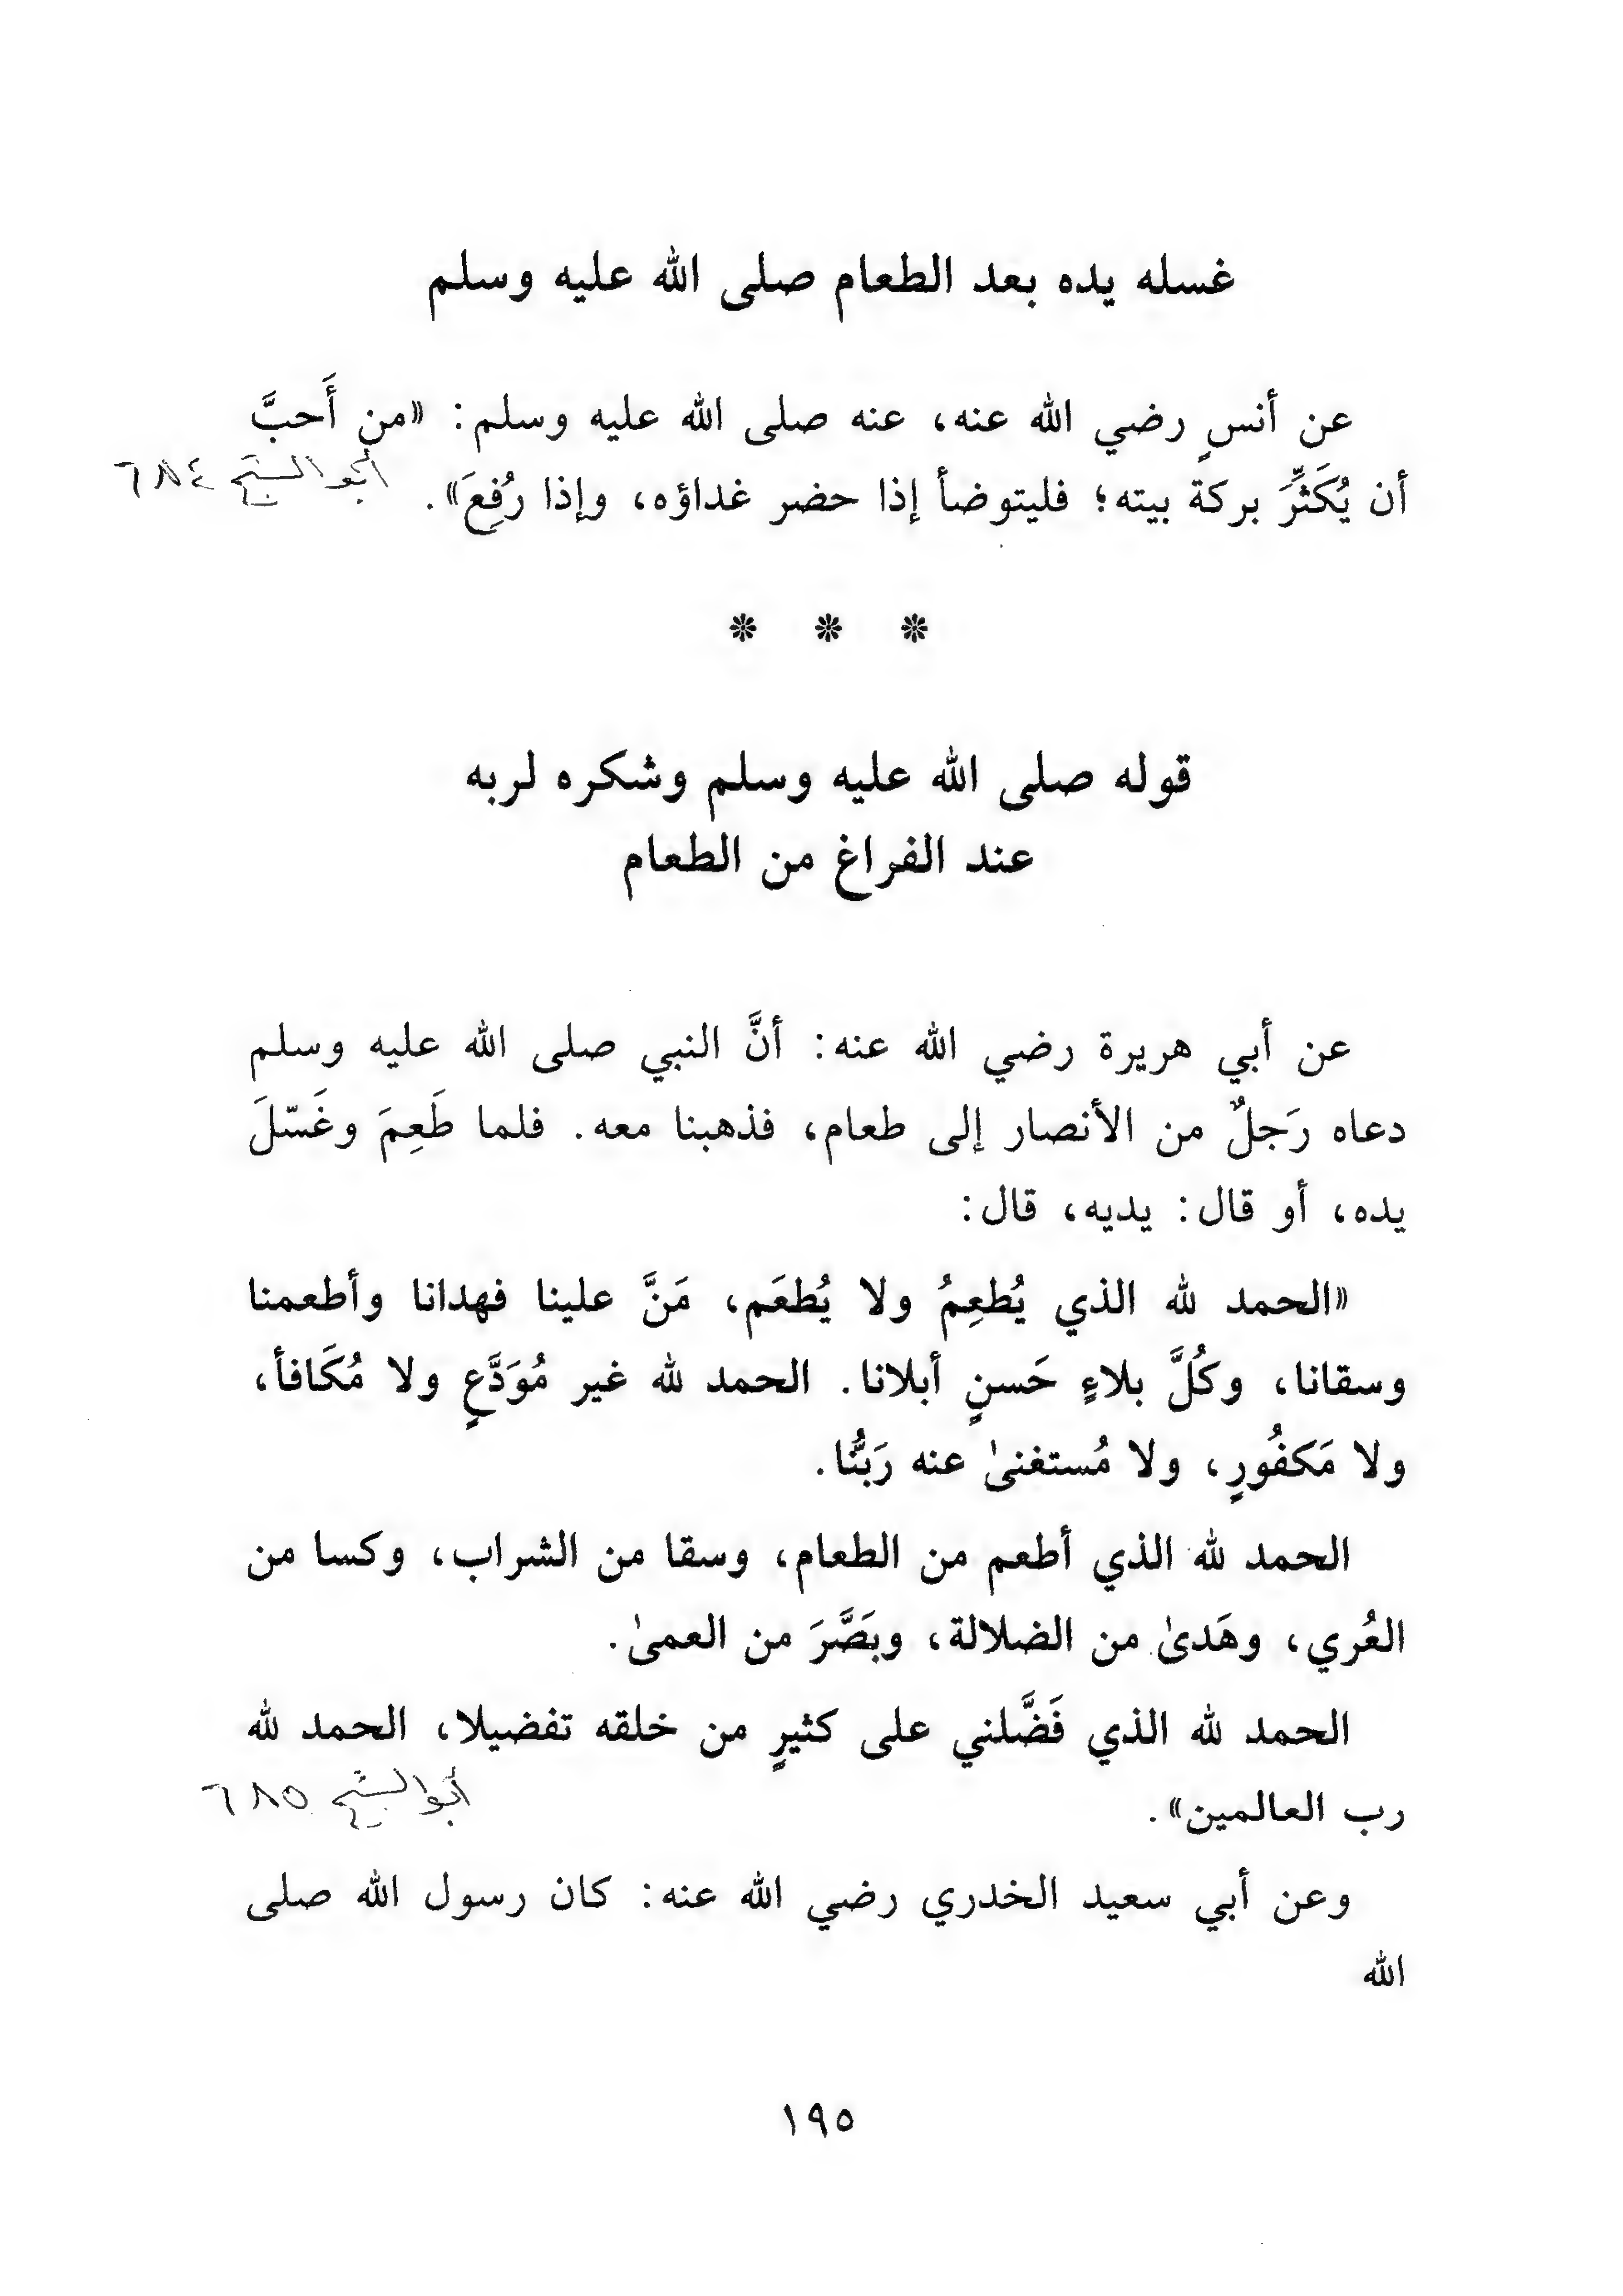 غسله يده بعد الطعام صلى الله عليه وسلم
عن أنسٍ رضي الله عنه، عنه صلى الله عليه وسلم: «من أَحبَّ
أبو الشيخ ٦٨٤
أن يُكَثِّرَ بركة بيته؛ فليتوضأ إذا حضر غداؤه، وإذا رُفِعَ».
* * *
قوله صلى الله عليه وسلم وشكره لربه
عند الفراغ من الطعام
عن أبي هريرة رضي الله عنه: أنَّ النبي صلى الله عليه وسلم
دعاه رَجلٌ من الأنصار إلى طعام، فذهبنا معه. فلما طَعِمَ وغَسّلَ
يده، أو قال: يديه، قال:
«الحمد لله الذي يُطعِمُ ولا يُطعَم، مَنَّ علينا فهدانا وأطعمنا
وسقانا، وكُلَّ بلاءٍ حَسنٍ أبلانا. الحمد لله غير مُوَدَّعٍ ولا مُكَافأ،
ولا مَكفُورٍ، ولا مُستغنىٰ عنه رَبُّنا.
الحمد لله الذي أطعم من الطعام، وسقا من الشراب، وكسا من
العُري، وهَدىٰ من الضلالة، وبَصَّرَ من العمىٰ.
الحمد لله الذي فَضَّلني على كثيرٍ من خلقه تفضيلا، الحمد لله
رب العالمين».
أبو الشيخ ٦٨٥
وعن أبي سعيد الخدري رضي الله عنه: كان رسول الله صلى
الله
١٩٥